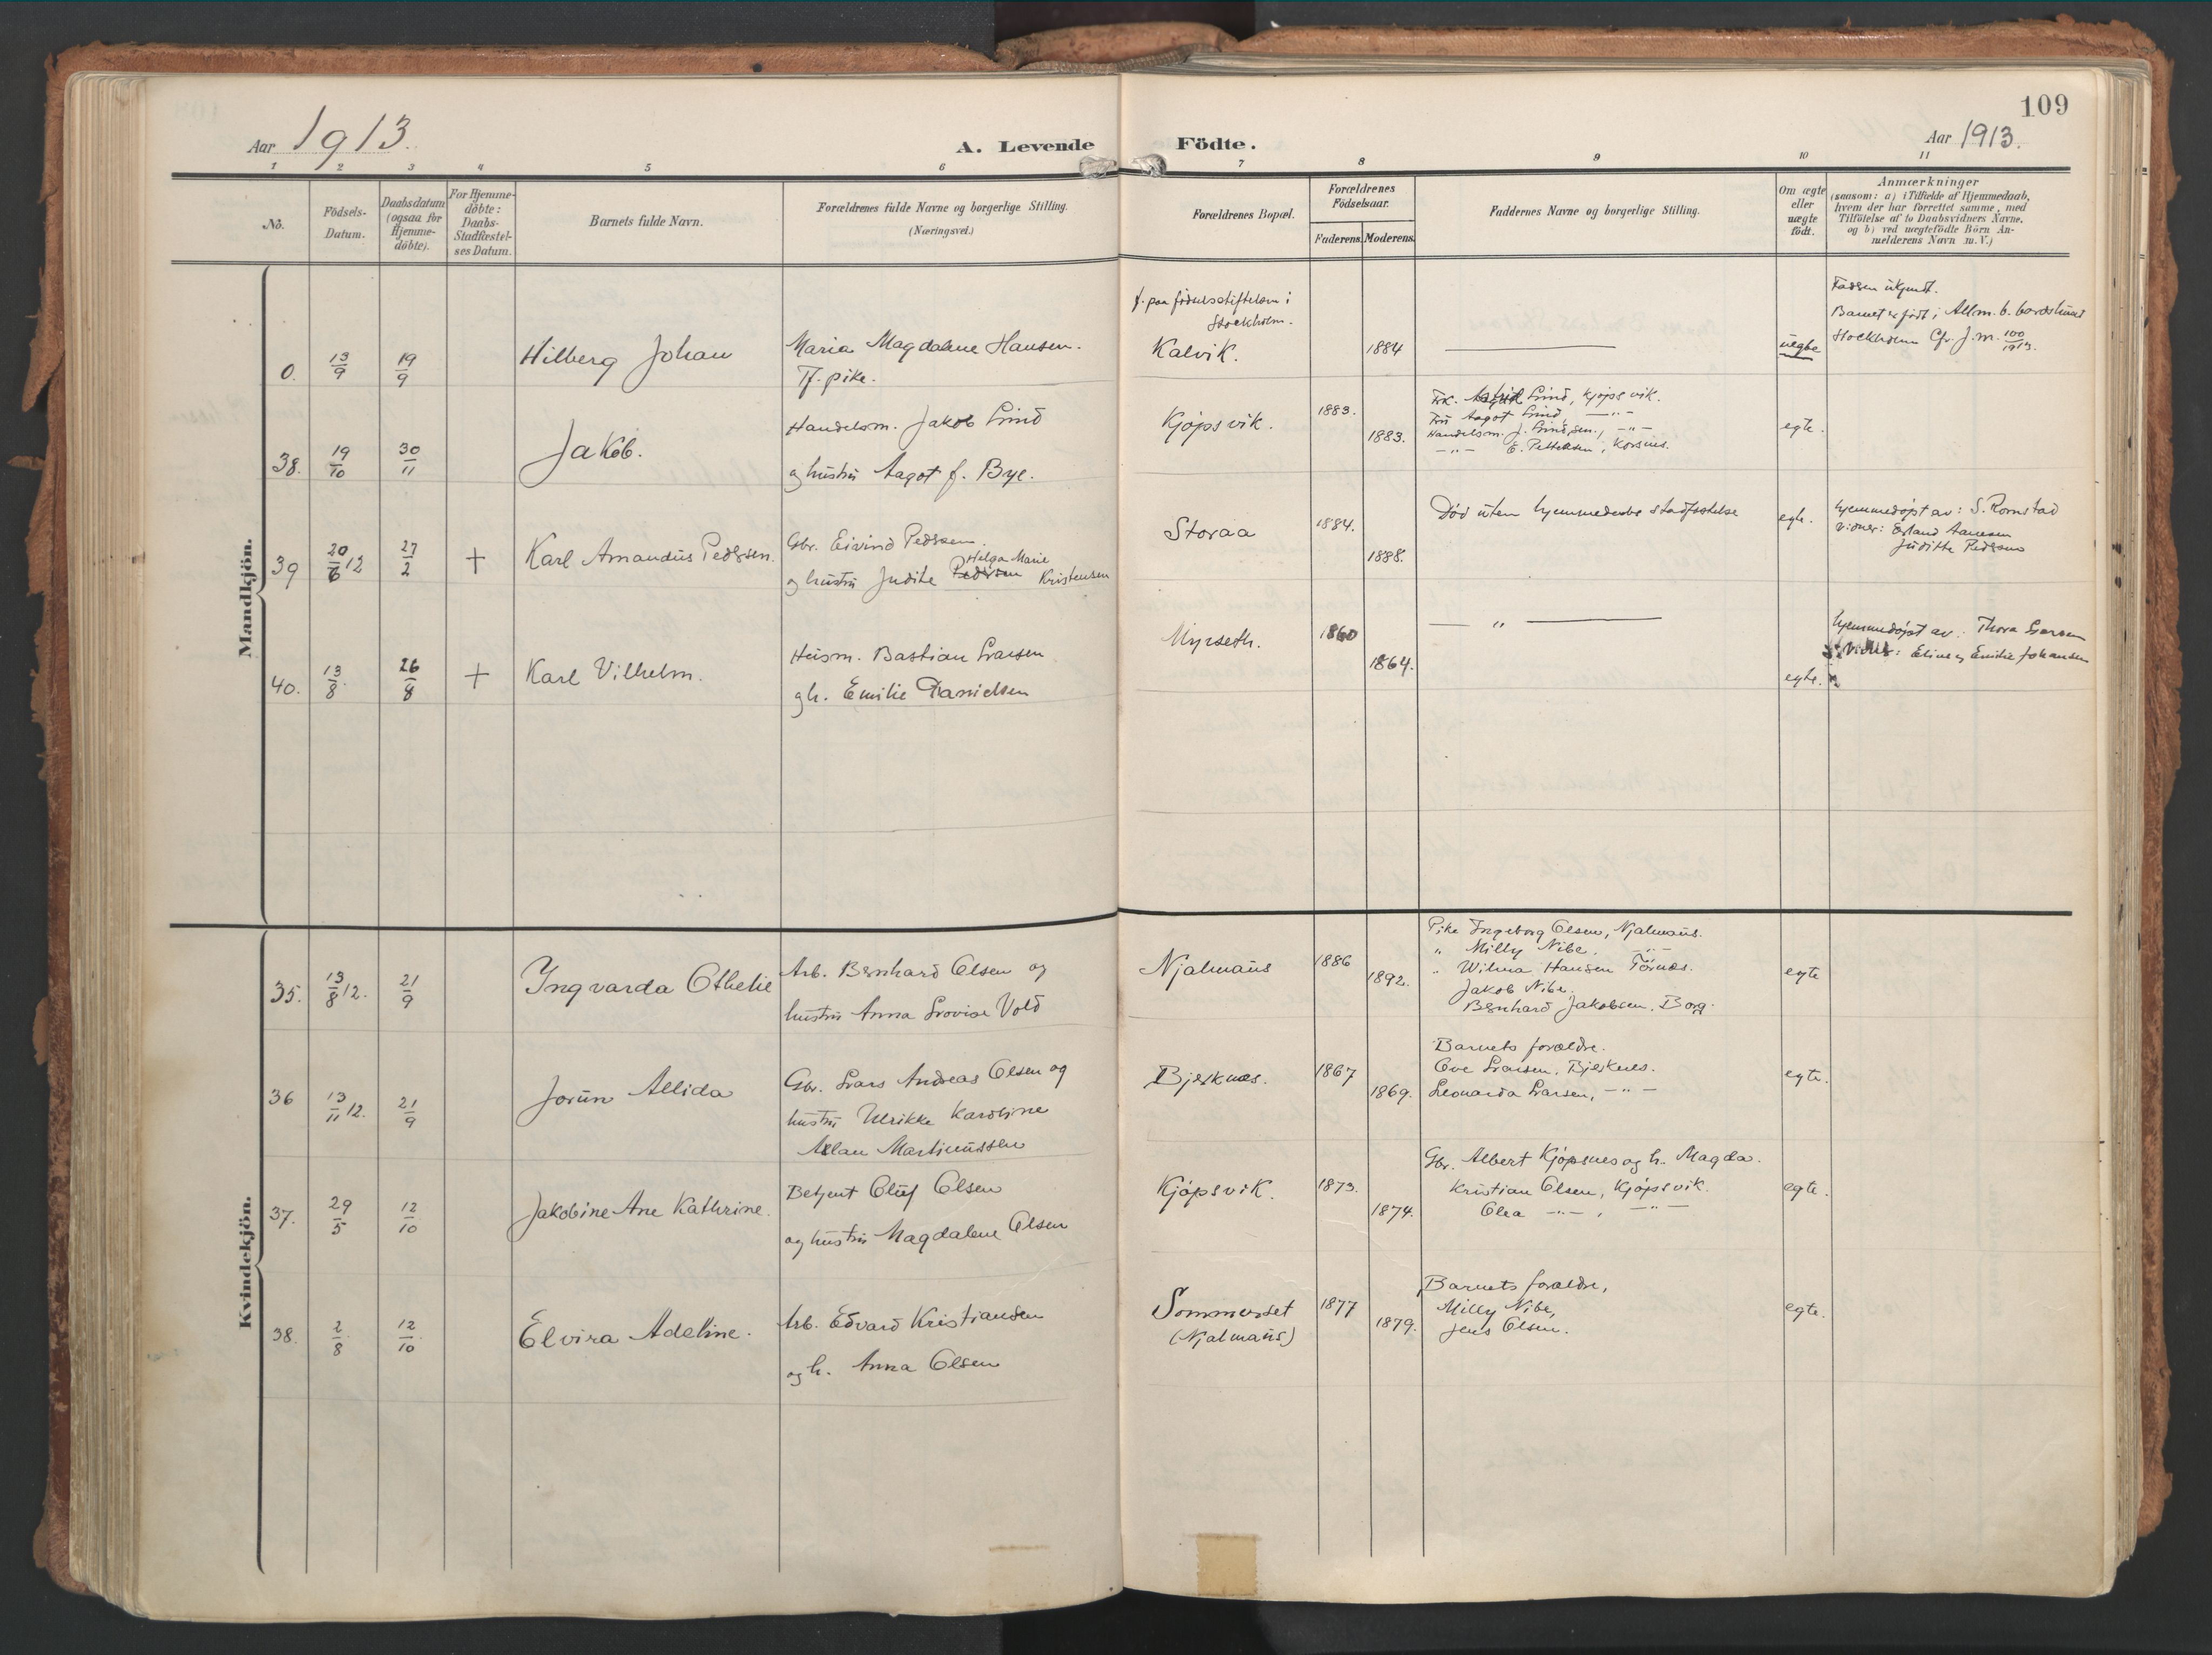 109
Aar 1913.
A. Levende Födte.
Aar 1913.
1 2 3 4 5 6 7 8 9 10 11
No.
Födsels-
Datum.
Daabsdatum
(ogsaa for
Hjemme-
döbte).
For Hjemme-
döbte:
Daabs-
Stadfæstel-
ses Datum.
Barnets fulde Navn.
Forældrenes fulde Navne og borgerlige Stilling.
(Næringsvei.)
Forældrenes Bopæl.
Forældrenes
Födselsaar.
Faderens. Moderens.
Faddernes Navne og borgerlige Stilling.
Om ægte
eller
uægte
födt.
Anmærkninger
(saasom: a) i Tilfælde af Hjemmedaab,
hvem der har forrettet samme, med
Tilföielse af to Daabsvidners Navne,
og b) ved uægtefödte Börn An-
melderens Navn m. V.)
Mandkjön.
0. 13/9 19/9
Hilberg Johan
Maria Magdalene Hansen.
Tj. pike.
f. paa födselsstiftelsen i
Stockholm.
Kalvik.
1884
uegte
Faderen ukjendt.
Barnet er födt i Allm. b. bördshuset
Stockholm Cfr. J. m. 100/1913.
38. 19/10 30/11
Jakob.
Handelsm. Jakob Lind
og hustru Aagot f. Bye.
Kjøpsvik.
1883.
1883.
Frk. Astrid Lind, Kjøpsvik.
Fru Aagot Lind, —"—
Handelsm. J. Lind, sen., —"—
—"— E. Pettersen, Korsnes.
egte.
39 20/6 12 27/2 +
Karl Amandus Pedersen.
Gbr. Eivind Pedersen.
Helga Marie
og hustru Judite Pedersen Kristensen
Storaa
1884.
1888.
Död uten hjemmedaabs stadfæstelse
egte.
hjemmedøpt av: S. Romstad
vidner: Erland Aanesen
Juditte Pedersen
40. 13/8 26/8 +
Karl Vilhelm.
Husm. Bastian Larsen
og h. Emilie Danielsen
Myrseth.
1860
1864.
— " —
egte.
hjemmedøpt av: Thora Larsen
vidner: Eline og Emilie Johansen
Kvindekjön.
35. 13/8 12. 21/9
Yngvarda Othelie
Arb. Bernhard Olsen og
hustru Anna Lovise Vold
Njalmaus
1886
1892.
Pike Ingeborg Olsen, Njalmaus.
" Milly Nibe. —"—
" Wilma Hansen Törnæs.
Jakob Nibe.
Bernhard Jakobsen. Borg.
egte
36 13/11 12. 21/9
Jorun Allida
Gbr. Lars Andreas Olsen og
hustru Ulrikke Karoline
Martinussen
Bjerknæs.
1867
1869.
Barnets forældre.
Ove Larsen, Bjerknes.
Leonarda Larsen, —"—
egte.
37. 29/5 12/10
Jakobine Ane Kathrine.
Betjent Oluf Olsen
og hustru Magdalene Olsen
Kjøpsvik.
1873.
1874.
Gbr. Albert Kjøpsnes og h. Magda.
Kristian Olsen, Kjøpsvik.
Olea —"—, —"—
egte.
38. 2/8 12/10
Elvira Adeline.
Arb. Edvard Kristiansen
og h. Anna Olsen
Sommerset
(Njalmaus)
1877
1879.
Barnets forældre,
Milly Nibe,
Jens Olsen.
egte.